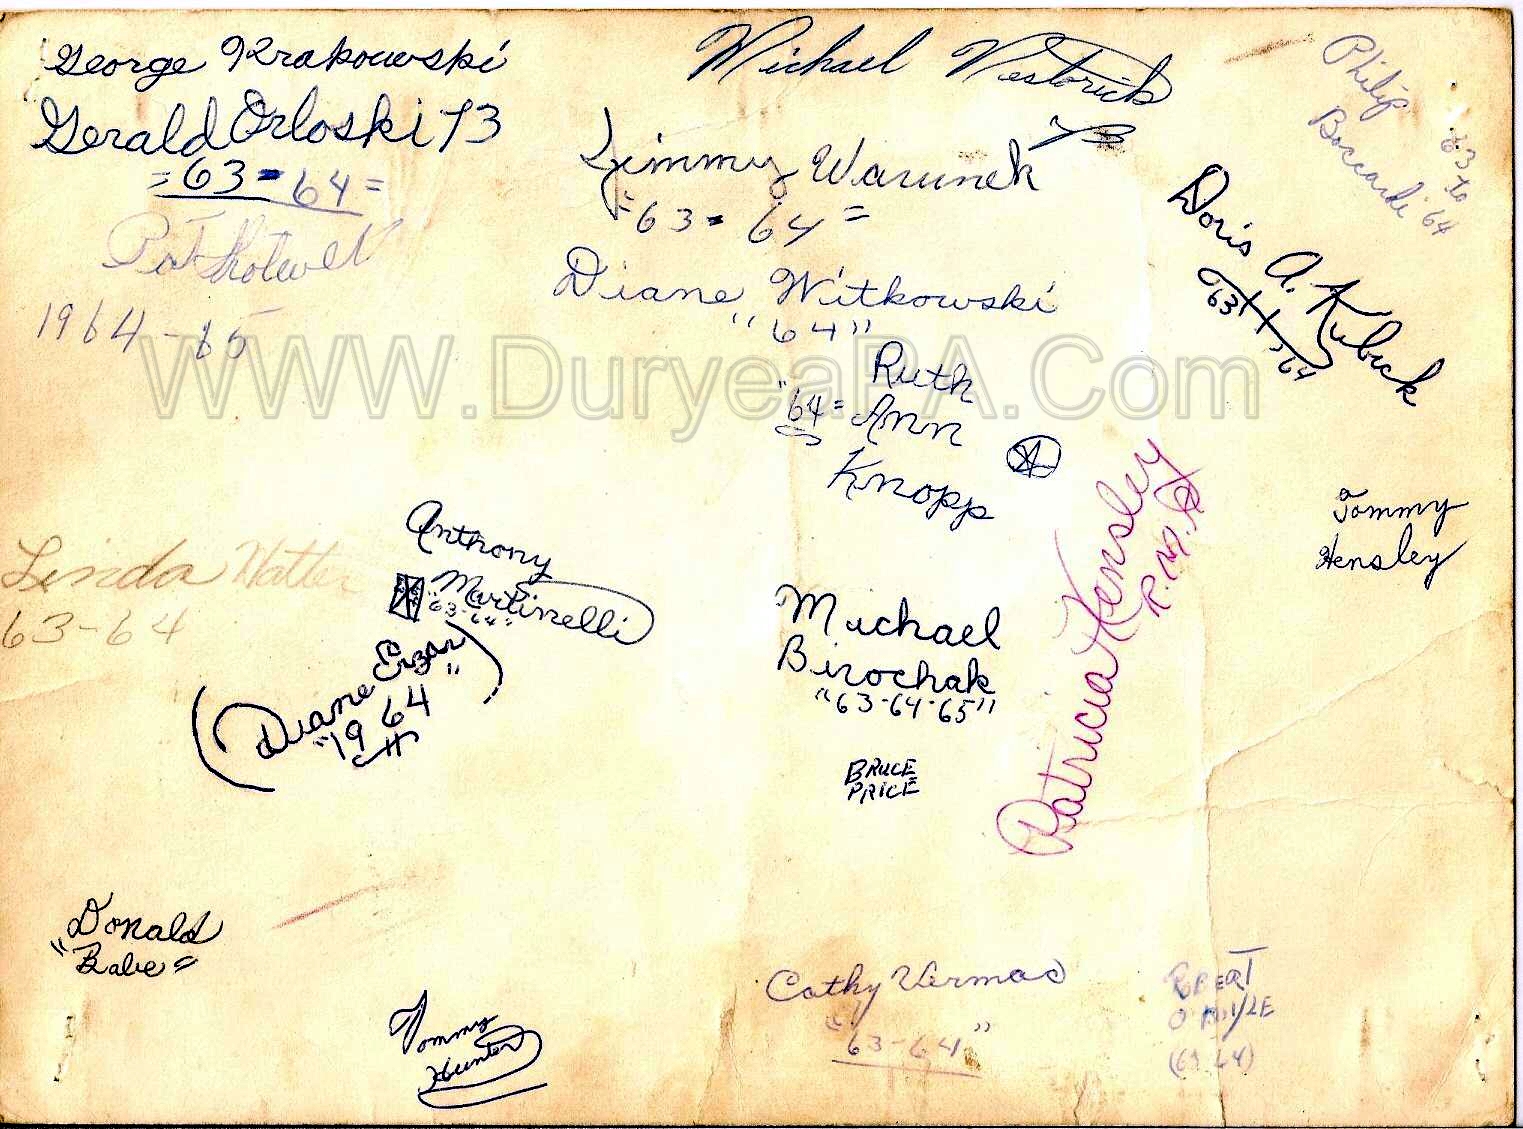 George Krakowski
Gerald Orloski 73
=63=64=
1964-65
Michael
Jimmy Warunek
"63=64=
Diane Witkowski
"64"
Ruth
"64= Ann
Knopp
Philip
Boccardi
63 to
'64
Doris A. Kubick
63 64
WWW.DuryeaPA.Com
Linda
63-64
Anthony
Martinelli
"63-64"
(Diane Erzar)
"1964"
Michael
Birochak
"63-64-65"
BRUCE
PRICE
Patricia Hensley
Tommy
Hensley
Donald
"Babe"
Tommy
Hunter
Cathy Vermac
"63-64"
(63 64)